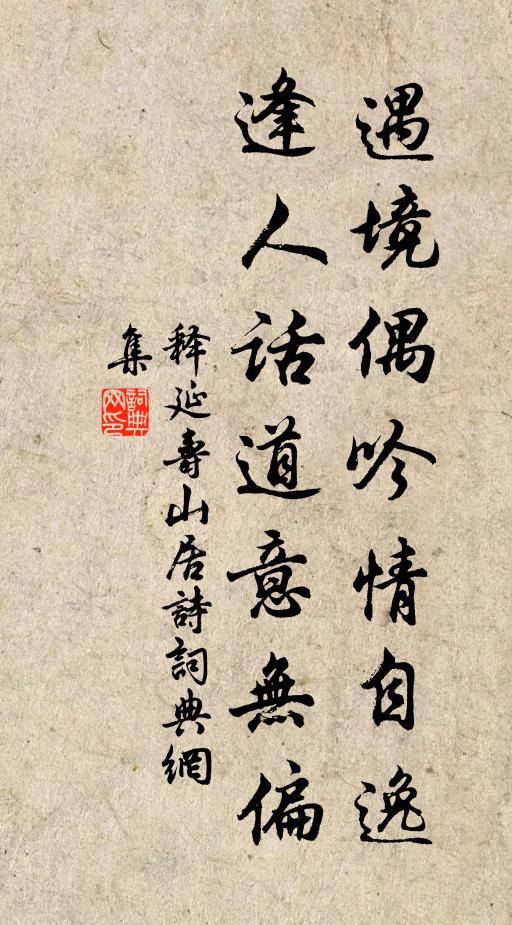 遇境偶吟情自逸
逢人話道意無偏
释延壽山居詩詞典網
集
詞典網印